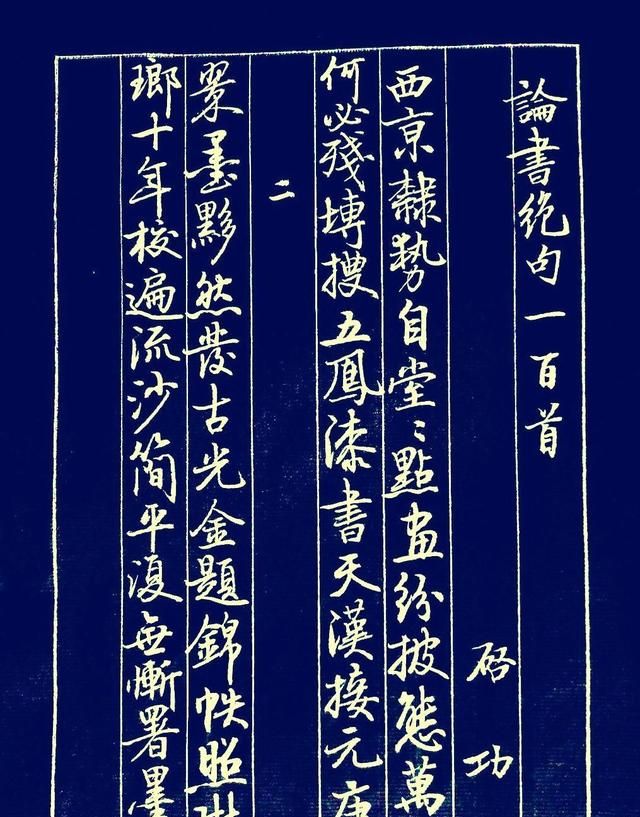 論書絶句一百首
启功
西京隸勢自堂〻點畫紛披態萬
何必殘塼搜五鳳漆書天漢接元康
二
翠墨黟然發古光金題錦帙照琳
瑯十年校遍流沙簡平復無慚署墨